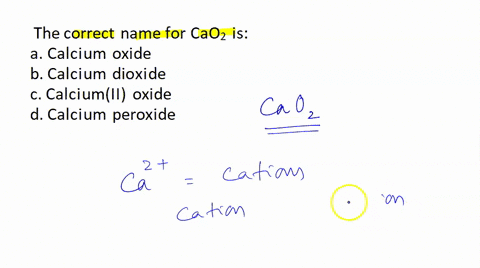 The correct name for CaO₂ is:
a. Calcium oxide
b. Calcium dioxide
c. Calcium(II) oxide
d. Calcium peroxide
CaO₂
Ca²⁺ = cations
cation on